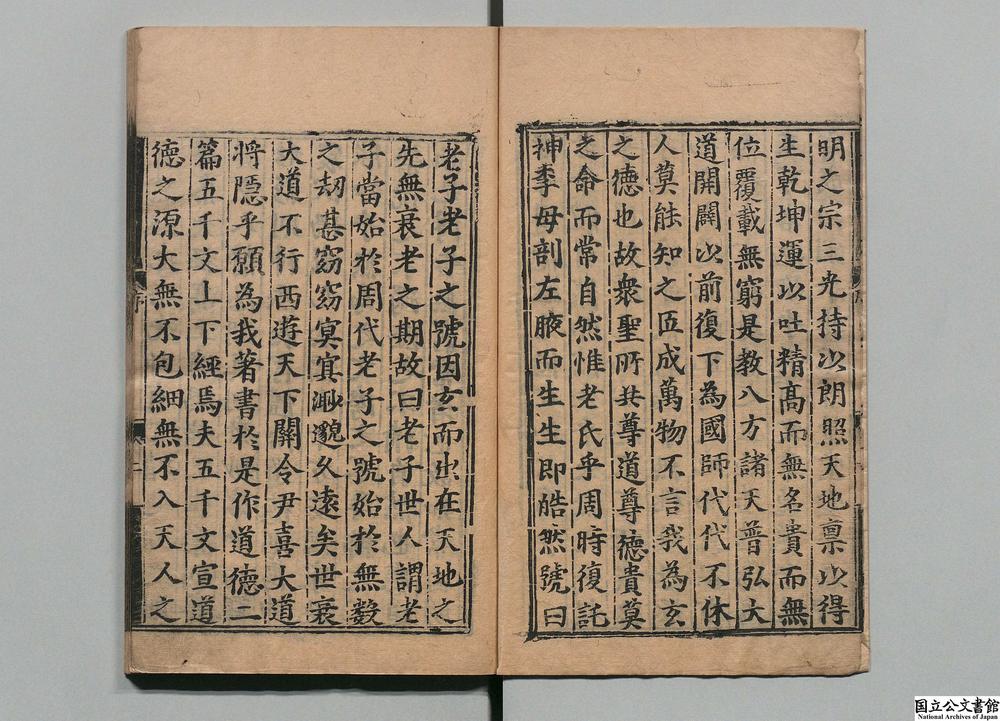 明之宗三光持以朗照天地稟以得
生乾坤運以吐精髙而無名貴而無
位覆載無窮是教八方諸天普弘大
道開闢以前復下為國師代代不休
人莫能知之匠成萬物不言我為玄
之德也故衆聖所共尊道尊德貴莫
之命而常自然惟老氏乎周時復託
神李母剖左腋而生生即皓然號曰
老子老子之號因玄而出在天地之
先無衰老之期故曰老子世人謂老
子當始於周代老子之號始於無數
之刼甚窈窈冥冥渺邈久遠矣世衰
大道不行西遊天下關令尹喜大道
将隱乎願為我著書於是作道德二
篇五千文上下經焉夫五千文宣道
德之源大無不包細無不入天人之
序
二
国立公文書館
National Archives of Japan